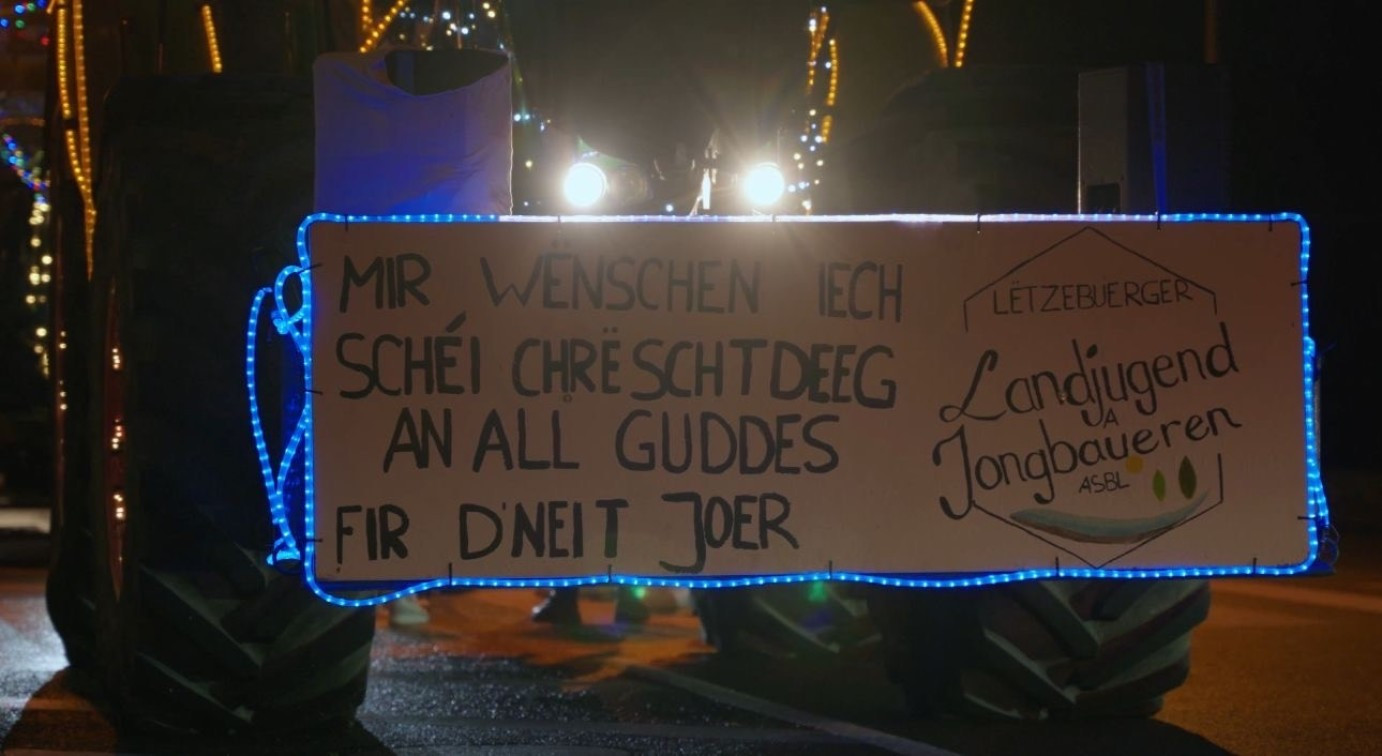 MIR WËNSCHEN IECH
SCHÉI CHRËSCHTDEEG
AN ALL GUDDES
FIR D'NEIT JOER
LËTZEBUERGER
Landjugend
A
Jongbaueren
ASBL